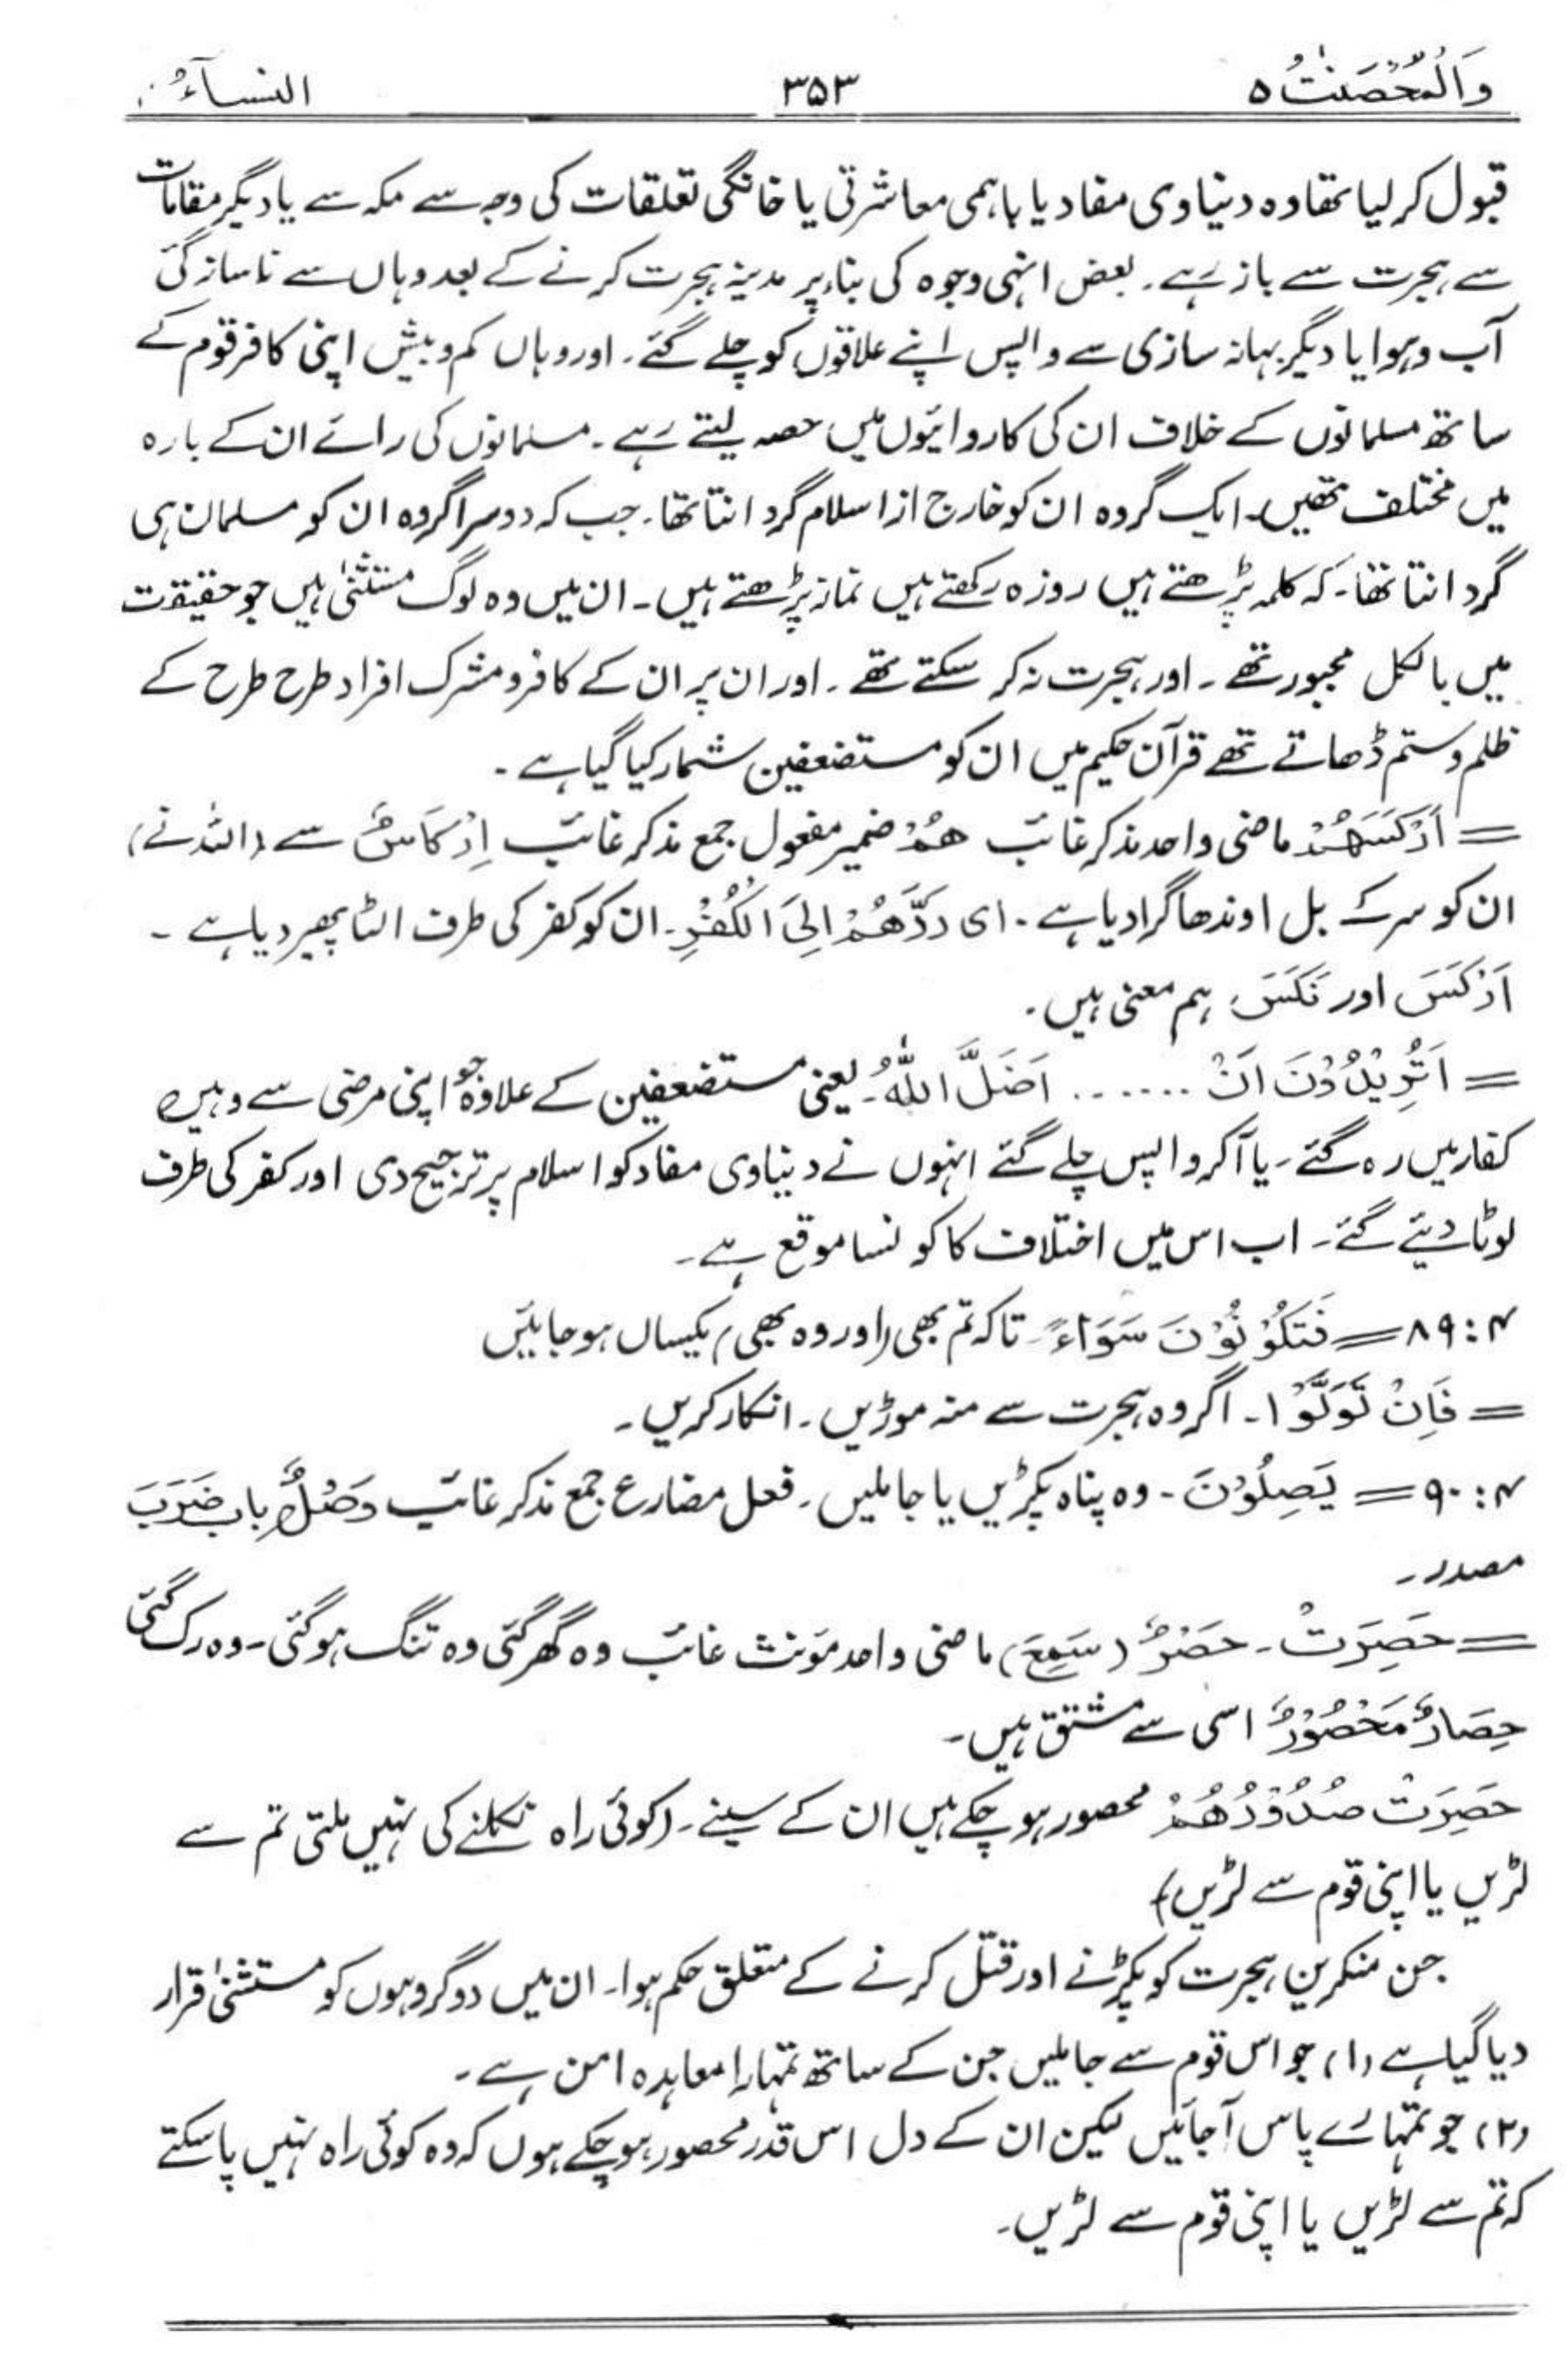 وَالْمُحْصَنٰتُ ۵
۳۵۳
النسآء
قبول کر لیا تھا وہ دنیاوی مفاد یا باہمی معاشرتی یا خانگی تعلقات کی وجہ سے مکہ سے یا دیگر مقامات
سے ہجرت سے باز رہے۔ بعض انہی وجوہ کی بناء پر مدینہ ہجرت کرنے کے بعد وہاں سے ناسازگئ
آب و ہوا یا دیگر بہانہ سازی سے واپس اپنے علاقوں کو چلے گئے۔ اور وہاں کم و بیش اپنی کافر قوم کے
ساتھ مسلمانوں کے خلاف ان کی کاروائیوں میں حصہ لیتے رہے۔ مسلمانوں کی رائے ان کے بارہ
میں مختلف تھیں۔ ایک گروہ ان کو خارج از اسلام گردانتا تھا۔ جب کہ دوسرا گروہ ان کو مسلمان ہی
گردانتا تھا۔ کہ کلمہ پڑھتے ہیں روزہ رکھتے ہیں نماز پڑھتے ہیں۔ ان میں وہ لوگ مستثنیٰ ہیں جو حقیقت
میں بالکل مجبور تھے۔ اور ہجرت نہ کر سکتے تھے۔ اور ان پر ان کے کافر و مشرک افراد طرح طرح کے
ظلم و ستم ڈھاتے تھے قرآن حکیم میں ان کو مستضعفین شمار کیا گیا ہے۔
= اَرْكَسَهُمْ ماضی واحد مذکر غائب هُمْ ضمیر مفعول جمع مذکر غائب اِرْكَاسٌ سے (اللہ نے)
ان کو سر کے بل اوندھا گرا دیا ہے۔ ای رَدَّهُمْ اِلَى الْكُفْرِ۔ ان کو کفر کی طرف الٹا پھیر دیا ہے۔
اَرْكَسَ اور نَكَسَ ہم معنی ہیں۔
= اَتُرِيْدُوْنَ اَنْ ...... اَضَلَّ اللّٰهُ۔ یعنی مستضعفین کے علاوہ جو اپنی مرضی سے وہیں
کفار میں رہ گئے۔ یا آکر واپس چلے گئے انہوں نے دنیاوی مفاد کو اسلام پر ترجیح دی اور کفر کی طرف
لوٹا دیئے گئے۔ اب اس میں اختلاف کا کونسا موقع ہے۔
۴: ۸۹ = فَتَكُوْنُوْنَ سَوَاءً۔ تاکہ تم بھی (اور وہ بھی) یکساں ہو جائیں
= فَاِنْ تَوَلَّوْا۔ اگر وہ ہجرت سے منہ موڑیں۔ انکار کریں۔
۴: ۹۰ = يَصِلُوْنَ۔ وہ پناہ پکڑیں یا جا ملیں۔ فعل مضارع جمع مذکر غائب وَصْلٌ باب ضَرَبَ
مصدر۔
= حَصِرَتْ۔ حَصْرٌ (سَمِعَ) ماضی واحد مؤنث غائب وہ گھر گئی وہ تنگ ہو گئی۔ وہ رک گئی
حِصَارٌ مَحْصُوْرٌ اسی سے مشتق ہیں۔
حَصِرَتْ صُدُوْرُهُمْ محصور ہو چکے ہیں ان کے سینے۔ (کوئی راہ نکلنے کی نہیں ملتی تم سے
لڑیں یا اپنی قوم سے لڑیں)
جن منکرین ہجرت کو پکڑنے اور قتل کرنے کے متعلق حکم ہوا۔ ان میں دو گروہوں کو مستثنیٰ قرار
دیا گیا ہے (۱) جو اس قوم سے جا ملیں جن کے ساتھ تمہارا معاہدہ امن ہے۔
(۲) جو تمہارے پاس آجائیں لیکن ان کے دل اس قدر محصور ہو چکے ہوں کہ وہ کوئی راہ نہیں پا سکتے
کہ تم سے لڑیں یا اپنی قوم سے لڑیں۔